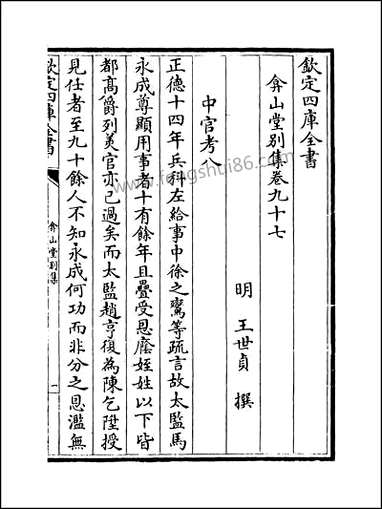 欽定四庫全書
弇山堂别集卷九十七
明 王世貞 撰
中官考八
正德十四年兵科左給事中徐之鸞等疏言故太監馬
永成尊顯用事者十有餘年且疊受恩廕姪姓以下皆
都高爵列美官亦已過矣而太監趙亨復為陳乞陞授
見任者至九十餘人不知永成何功而非分之恩濫無
欽定四庫全書
弇山堂别集
一
www.fengshui86.com